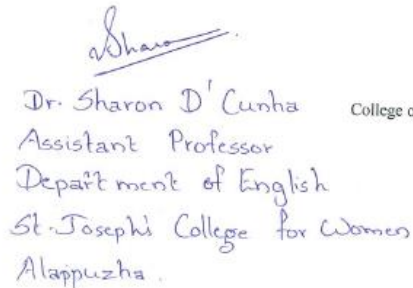 Sharon
Dr. Sharon D'Cunha
College o
Assistant Professor
Department of English
St. Joseph's College for Women
Alappuzha.